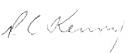 R. C. Kenny